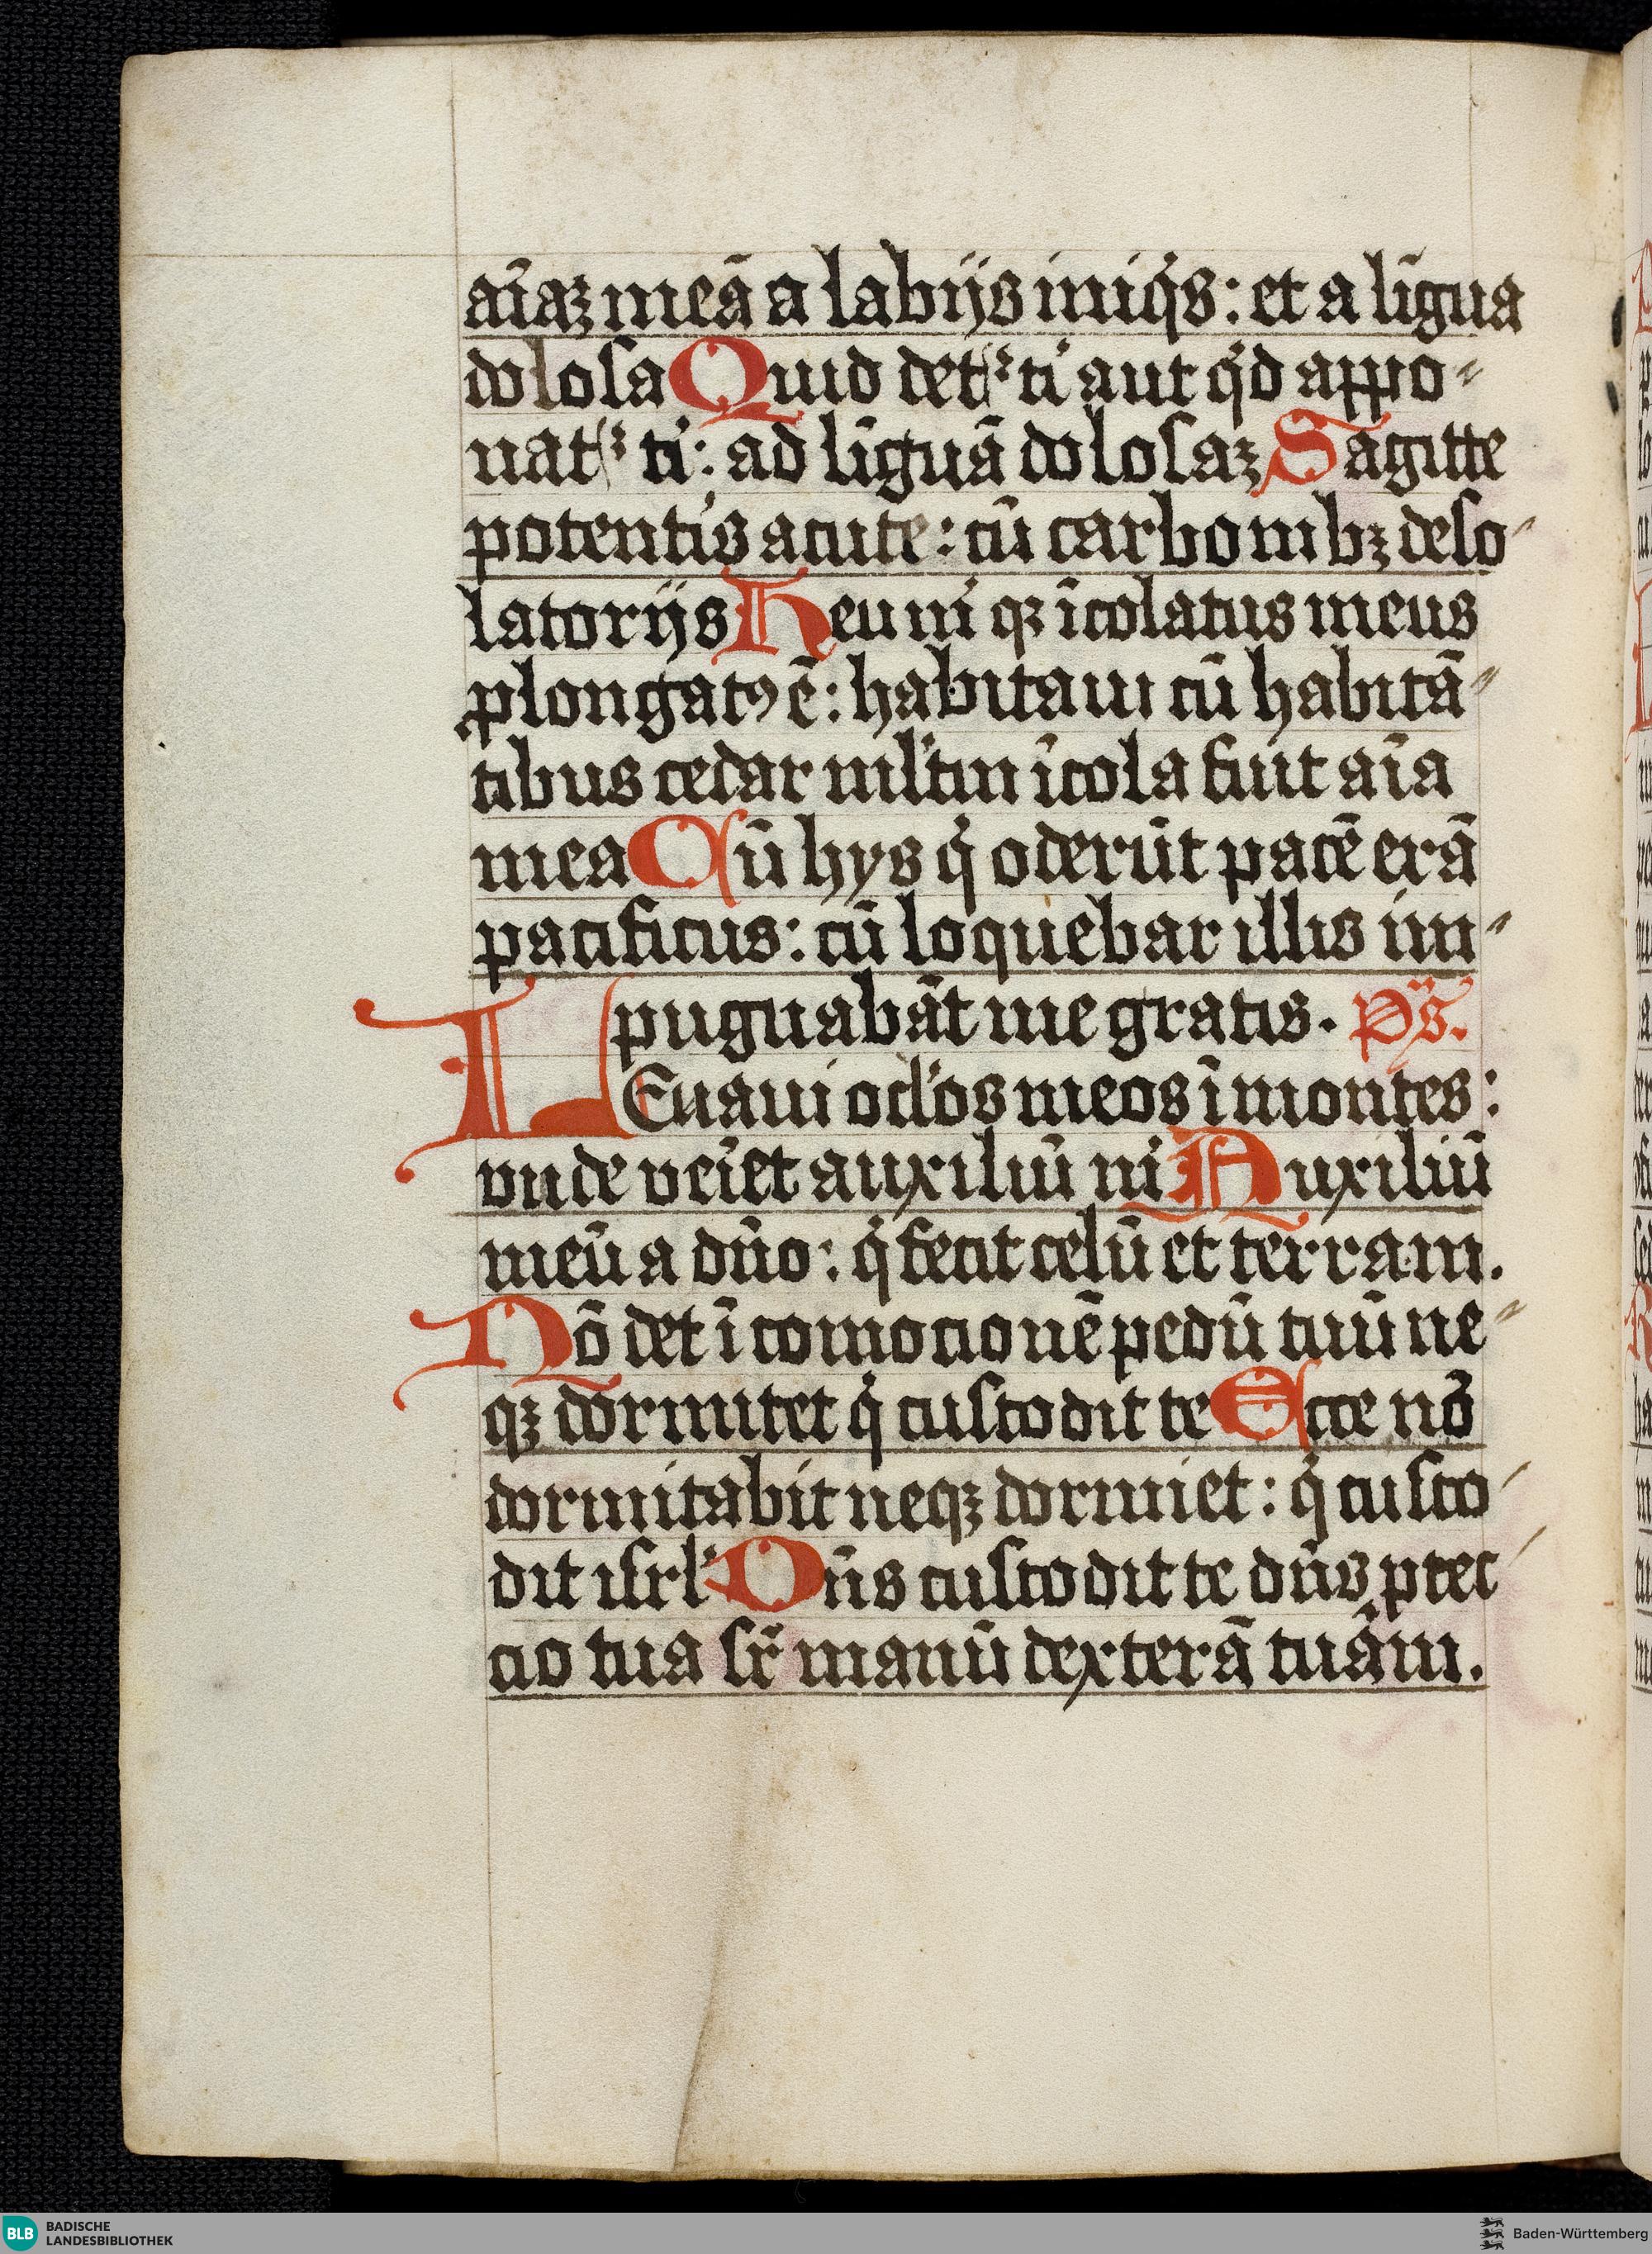 aīaꝫ meā a labijs iniq̇s : et a līgua
dolosa Quid det᷑ ti aut q̇d appo-
nat᷑ ti : ad līguā dolosaꝫ Sagitte
potentis acute : cū carbonibꝫ deso-
latorijs Heu m̄ qꝫ īcolatus meus
ꝓlongatꝰ ē : habitaui cū habitā-
tibus cedar ml̓tm īcola fuit aīa
mea Cū hys q̇ oderūt pacē erā
pacificus : cū loquebar illis im-
pugnabāt me gratis. P̄s.
LEuaui ocl̓os meos ī montes :
vnde veīet auxiliū m̄ Auxiliū
meū a dn̄o : q̇ fecit celū et terram.
Nō det ī comocionē pedū tuū ne-
qꝫ dormitet q̇ custodit te Ecce nō
dormitabit neqꝫ dormiet : q̇ custo-
dit isrl̓ Dn̄s custodit te dn̄s ꝓtec-
cio tua sr̄ manū dexterā tuām.
BLB BADISCHE
LANDESBIBLIOTHEK
Baden-Württemberg